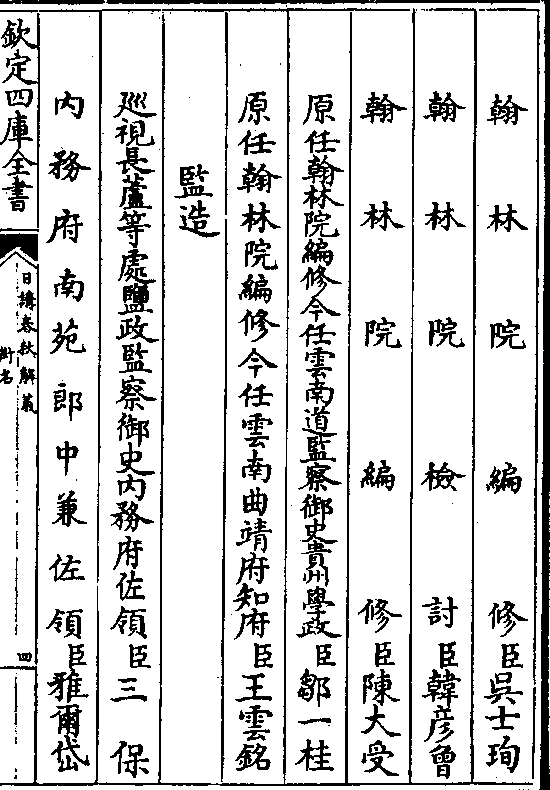 翰林院編修臣吳士珣
翰林院檢討臣韓彥曾
翰林院編修臣陳大受
原任翰林院編修今任雲南道監察御史貴州學政臣鄒一桂
原任翰林院編修今任雲南曲靖府知府臣王雲銘
監造
巡視長蘆等處鹽政監察御史內務府佐領臣三保
內務府南苑郎中兼佐領臣雅爾岱
欽定四庫全書
日講春秋解義
銜名
四